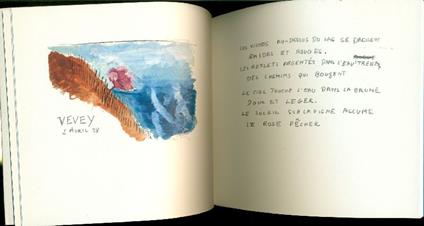 VEVEY
2 AVRIL 78
LES VIGNES AU-DESSUS DU LAC SE DRESSENT
RAIDES ET ROUGES.
LES REFLETS ARGENTÉS DANS L'EAU TREMBLENT
DES CHEMINS QUI BOUGENT
LE CIEL TOUCHE L'EAU DANS LA BRUME
DOUX ET LEGER.
LE SOLEIL SUR LA VIGNE ALLUME
LE ROSE PÊCHER